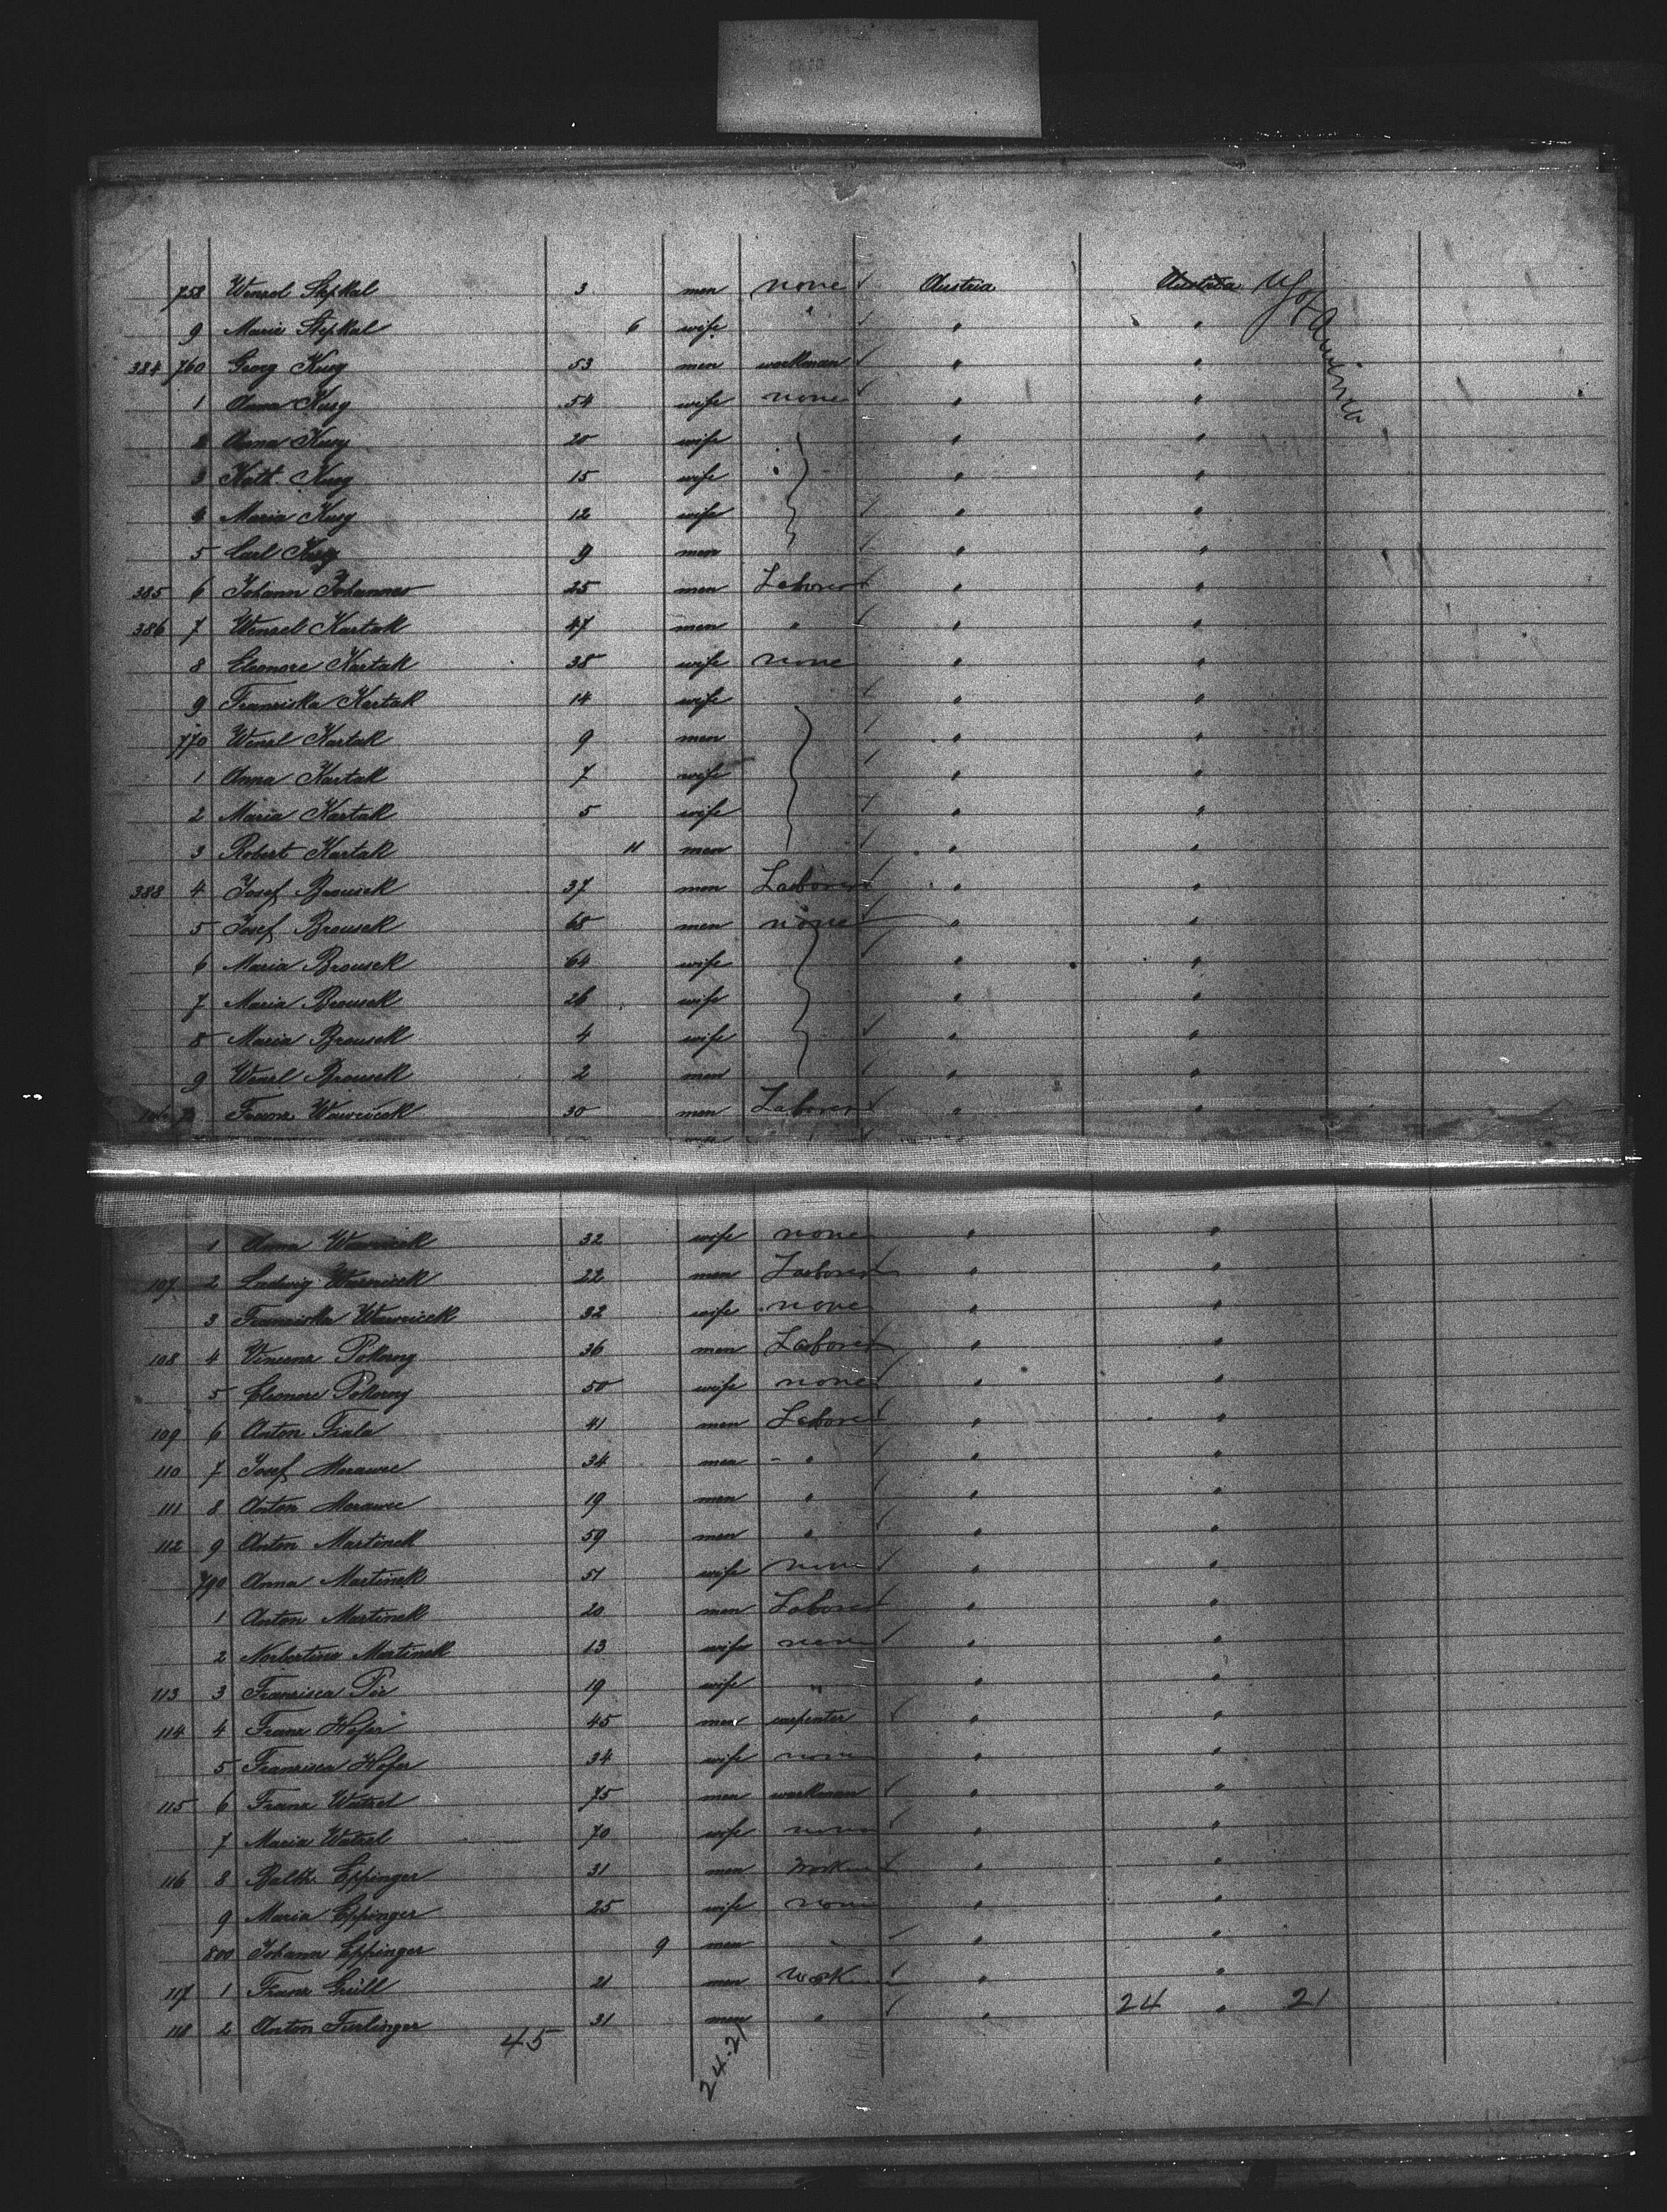 758 Wenzel Stepkal 3 men none Austria Austria U S of America
9 Marie Stepkal 6 wife " " "
384 760 Georg Kusy 53 men workman " "
1 Anna Kusy 54 wife none " "
2 Anna Kusy 20 wife " "
3 Kath. Kusy 15 wife " "
4 Maria Kusy 12 wife " "
5 Carl Kusy 9 men " "
385 6 Johann Johannes 25 men Laborer " "
386 7 Wenzel Kartak 47 men " " "
8 Eleonore Kartak 38 wife none " "
9 Franziska Kartak 14 wife " "
770 Wenzl Kartak 9 men " "
1 Anna Kartak 7 wife " "
2 Maria Kartak 5 wife " "
3 Robert Kartak 11 men " "
388 4 Josef Brousek 37 men Laborer " "
5 Josef Brousek 65 men none "
6 Maria Brousek 64 wife " "
7 Maria Brousek 26 wife " "
8 Maria Brousek 4 wife " "
9 Wenzl Brousek 2 men " "
106 Franz Wawricek 30 men Laborer " "
1 Anna Wawricek 32 wife none " "
107 2 Ludwig Wawricek 22 men Laborer " "
3 Franziska Wawricek 32 wife none " "
108 4 Vincenz Pokorny 36 men Laborer " "
5 Eleonore Pokorny 50 wife none " "
109 6 Anton Fiala 41 men Laborer " "
110 7 Josef Morawec 34 men " " "
111 8 Anton Morawec 19 men " " "
112 9 Anton Martinek 59 men " " "
790 Anna Martinek 51 wife none " "
1 Anton Martinek 20 men Laborer " "
2 Norbertina Martinek 13 wife none " "
113 3 Franzisca Pir 19 wife " " "
114 4 Franz Hofer 45 men carpenter " "
5 Franzisca Hofer 34 wife none " "
115 6 Franz Watzel 75 men workman " "
7 Maria Watzel 70 wife none " "
116 8 Balth. Eppinger 31 men " "
9 Maria Eppinger 25 wife none " "
800 Johann Eppinger 9 men " "
117 1 Franz Grill 21 men " "
118 2 Anton Furlinger 31 men " " 24 " 21
45 24-21